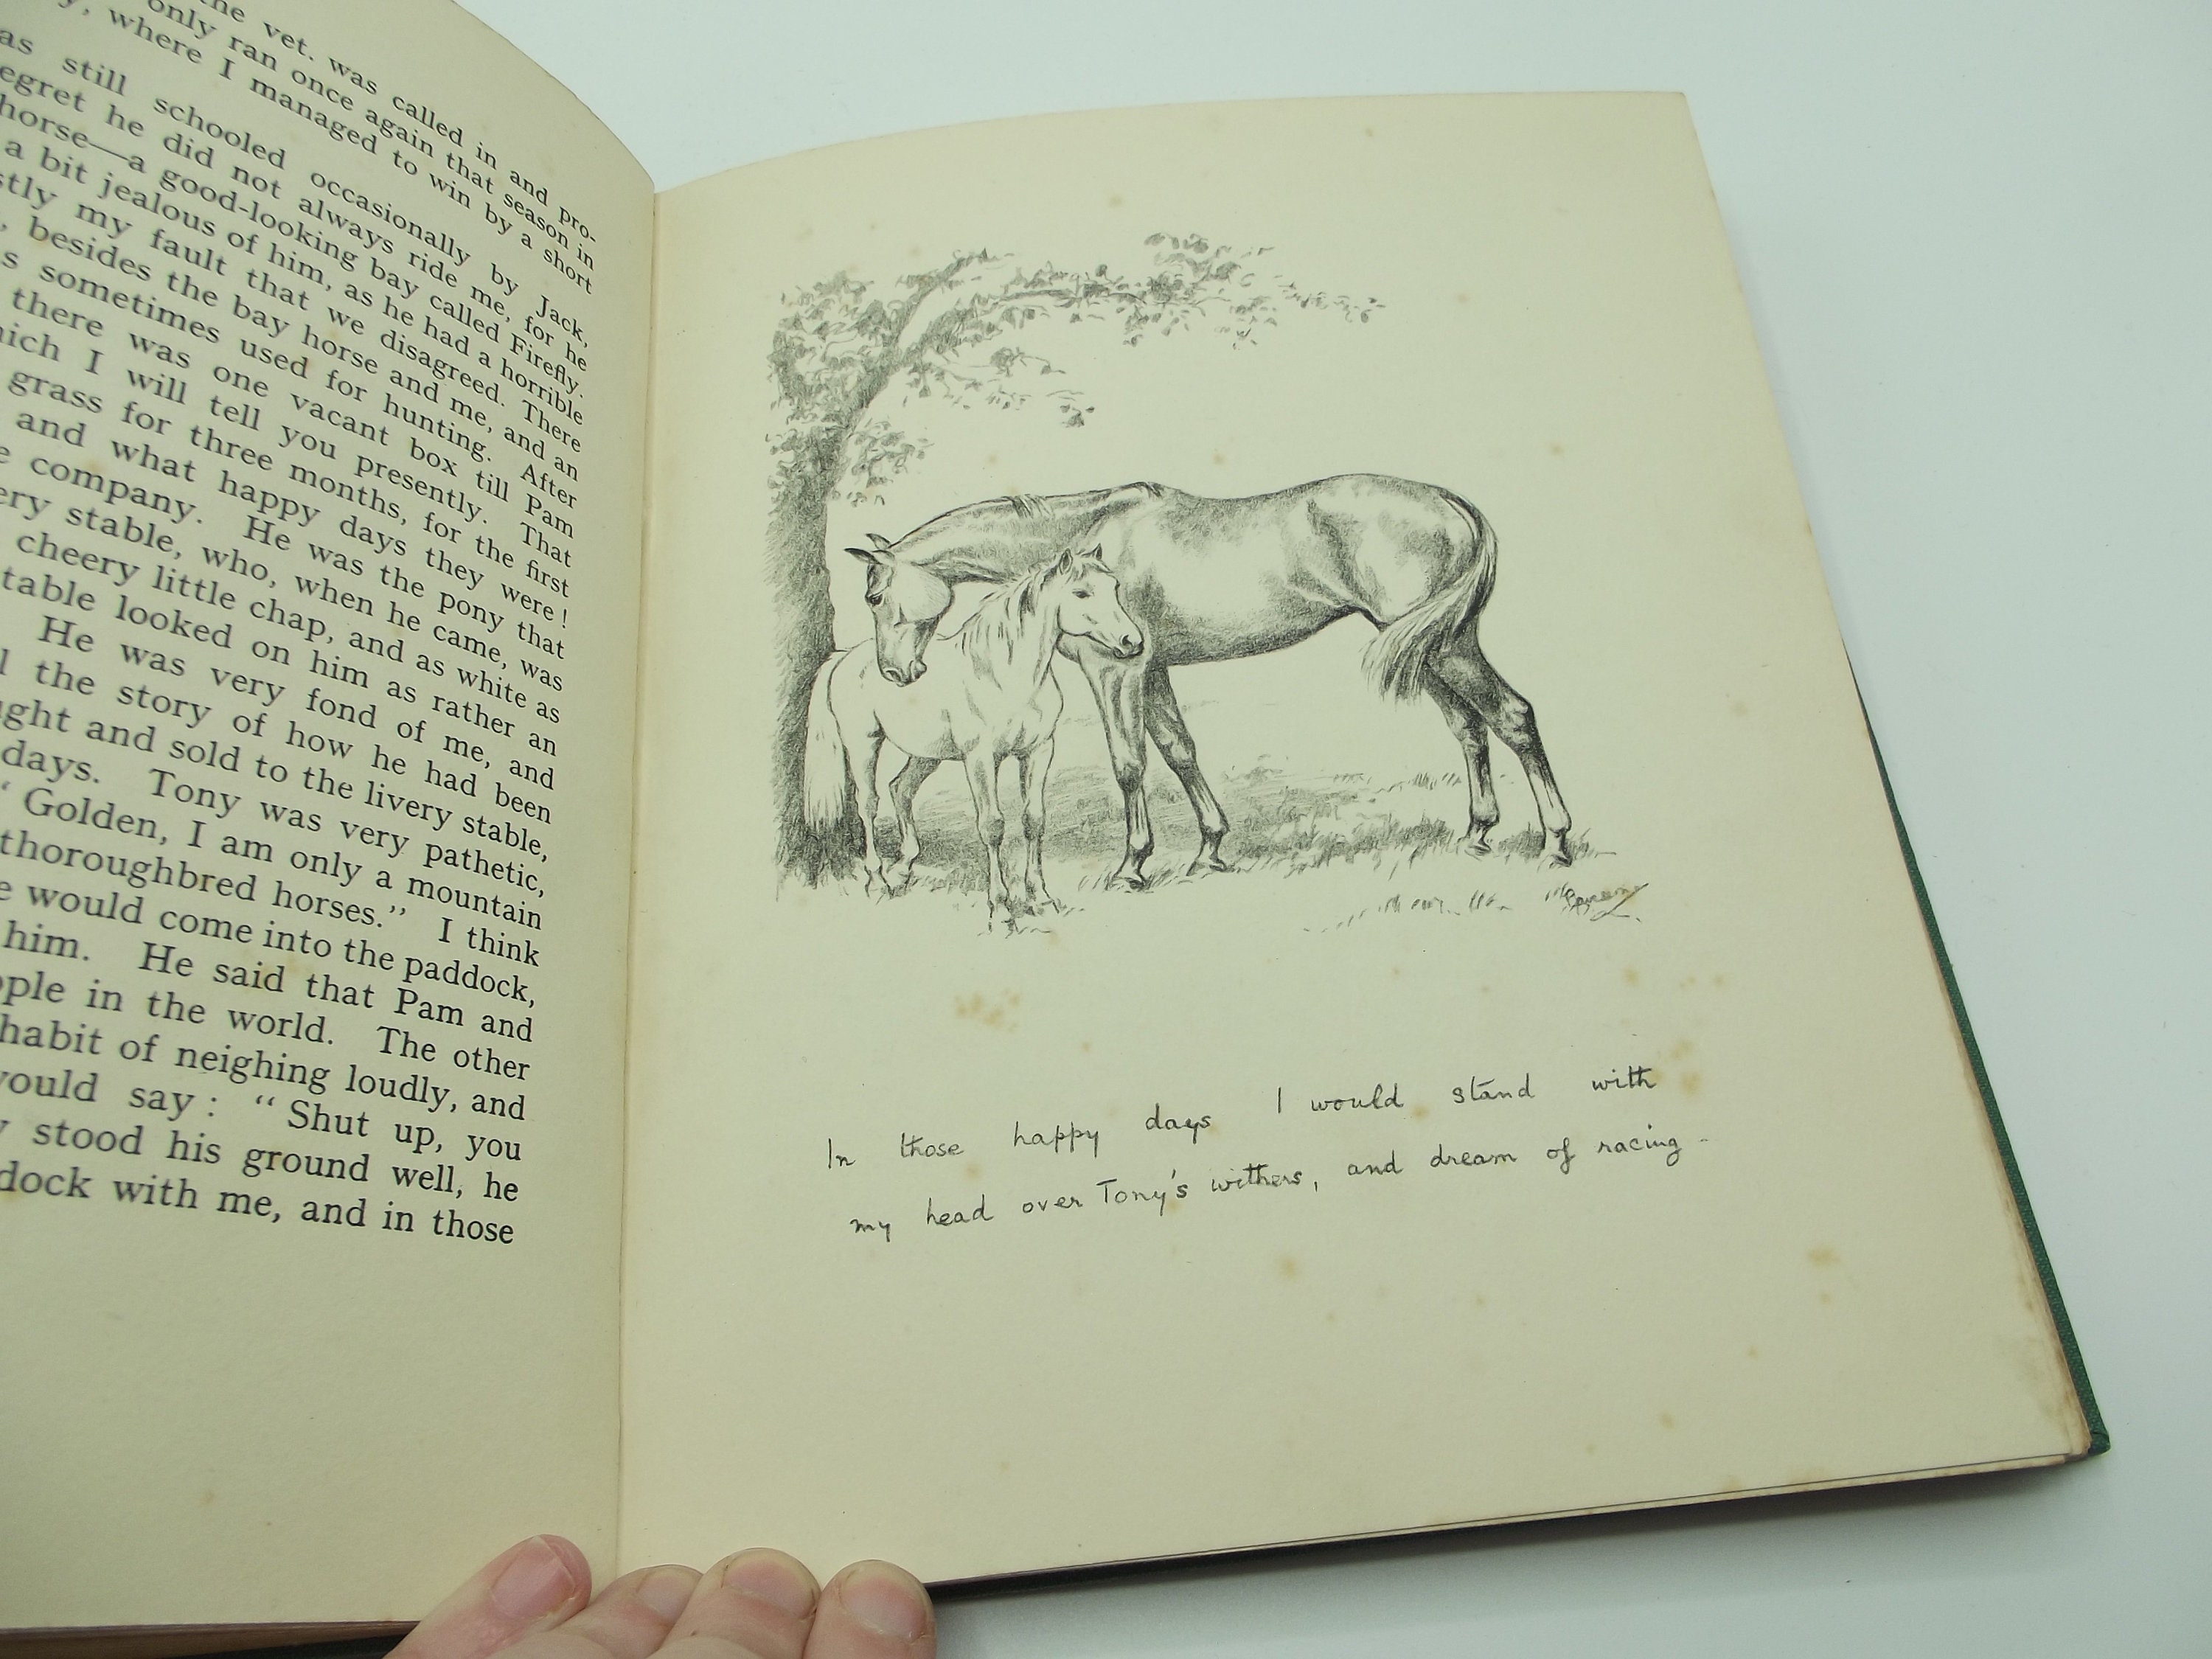 the vet. was called in and pro-
only ran once again that season in
, where I managed to win by a short
as still schooled occasionally by Jack,
egret he did not always ride me, for he
horse—a good-looking bay called Firefly.
a bit jealous of him, as he had a horrible
stly my fault that we disagreed. There
, besides the bay horse and me, and an
s sometimes used for hunting. After
there was one vacant box till Pam
hich I will tell you presently. That
grass for three months, for the first
and what happy days they were!
e company. He was the pony that
ery stable, who, when he came, was
cheery little chap, and as white as
table looked on him as rather an
He was very fond of me, and
l the story of how he had been
ught and sold to the livery stable,
days. Tony was very pathetic,
“Golden, I am only a mountain
thoroughbred horses.” I think
e would come into the paddock,
him. He said that Pam and
ople in the world. The other
habit of neighing loudly, and
would say: “Shut up, you
y stood his ground well, he
dock with me, and in those
In those happy days I would stand with
my head over Tony's withers, and dream of racing -